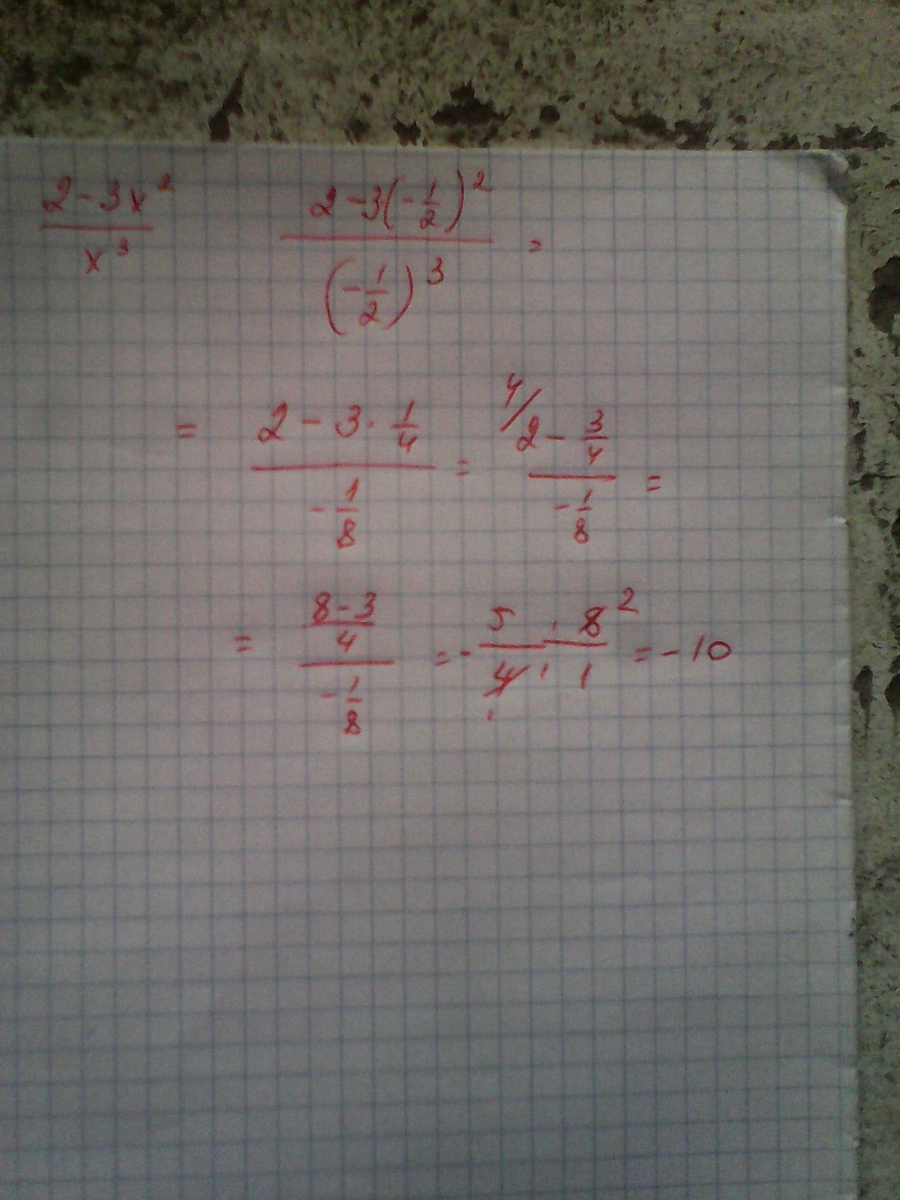 (2-3x²)/x³ (2-3(-1/2)²)/(-1/2)³ =
= (2-3·1/4)/(-1/8) = (⁴/2-3/4)/(-1/8) =
= ((8-3)/4)/(-1/8) = -5/4 · 8/1 = -10